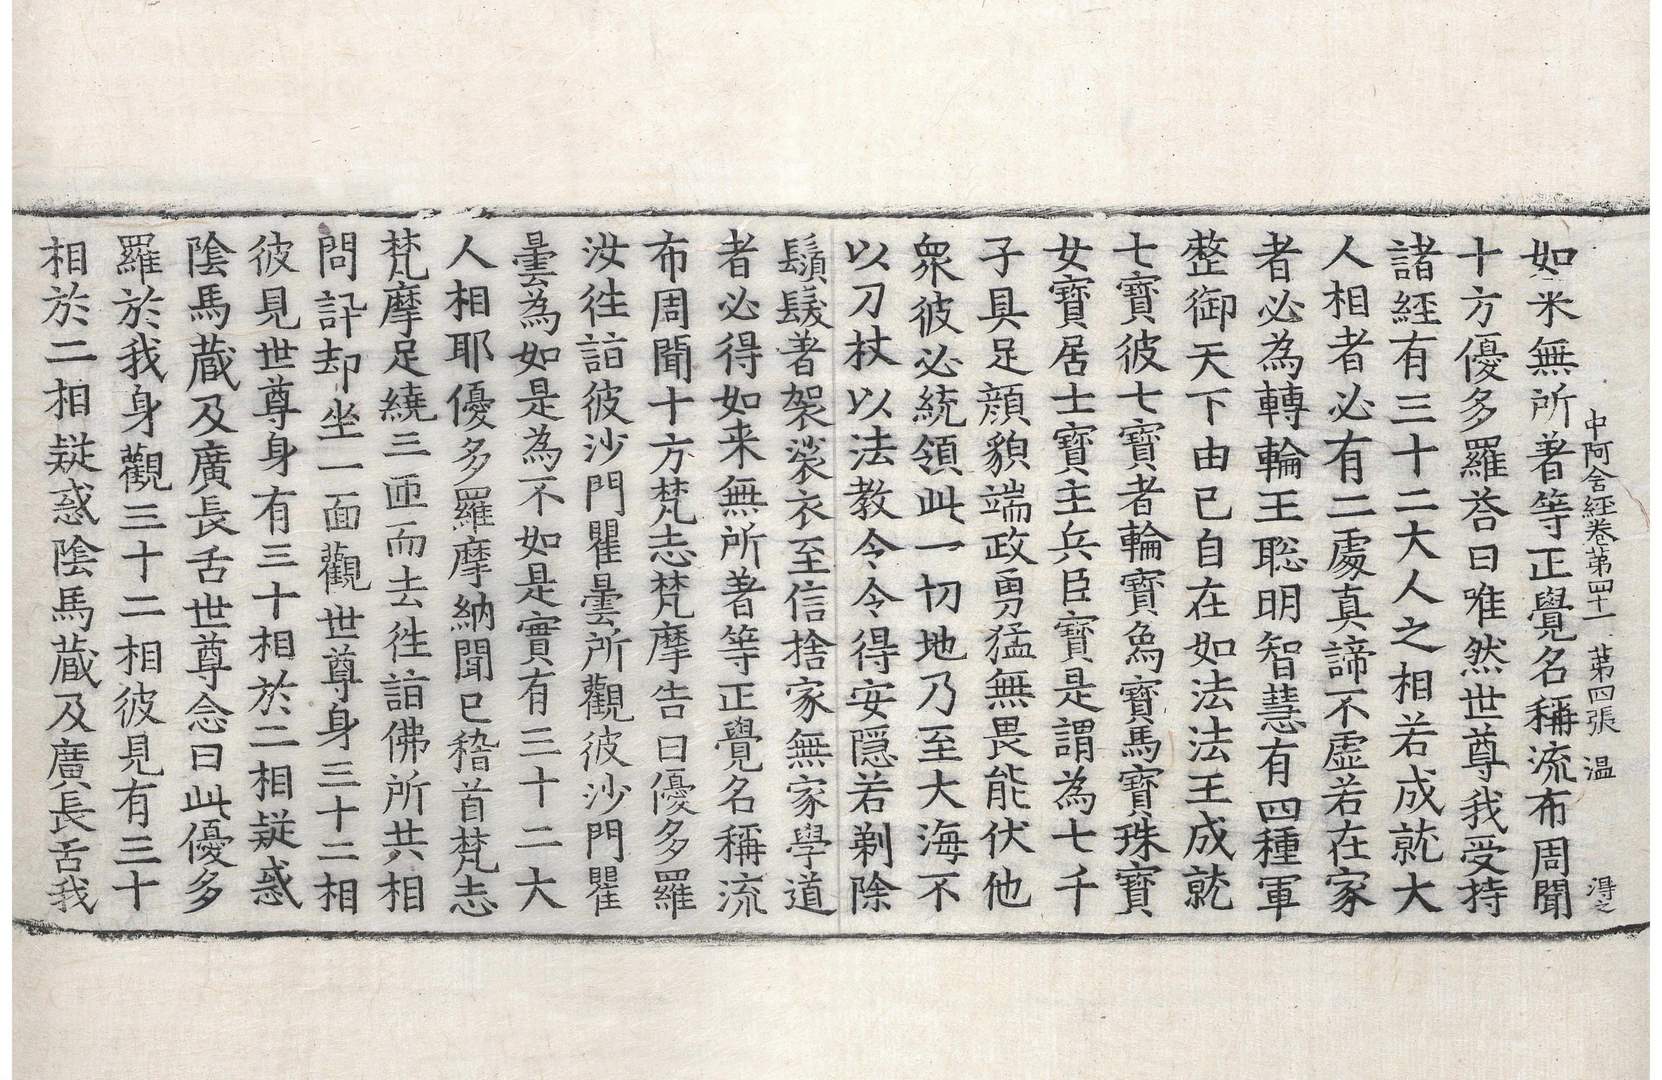 中阿含經卷第四十一 第四張 温 得之
如来無所著等正覺名稱流布周聞
十方優多羅荅曰唯然世尊我受持
諸經有三十二大人之相若成就大
人相者必有二處真諦不虛若在家
者必為轉輪王聡明智慧有四種軍
整御天下由已自在如法法王成就
七寶彼七寶者輪寶象寶馬寶珠寶
女寶居士寶主兵臣寶是謂為七千
子具足顔貌端政勇猛無畏能伏他
衆彼必統領此一切地乃至大海不
以刀杖以法教令令得安隱若剃除
鬚髮著袈裟衣至信捨家無家學道
者必得如来無所著等正覺名稱流
布周聞十方梵志梵摩告曰優多羅
汝徃詣彼沙門瞿曇所觀彼沙門瞿
曇為如是為不如是實有三十二大
人相耶優多羅摩納聞已稽首梵志
梵摩足繞三匝而去徃詣佛所共相
問訊却坐一面觀世尊身三十二相
彼見世尊身有三十相於二相疑惑
陰馬藏及廣長舌世尊念曰此優多
羅於我身觀三十二相彼見有三十
相於二相疑惑陰馬藏及廣長舌我